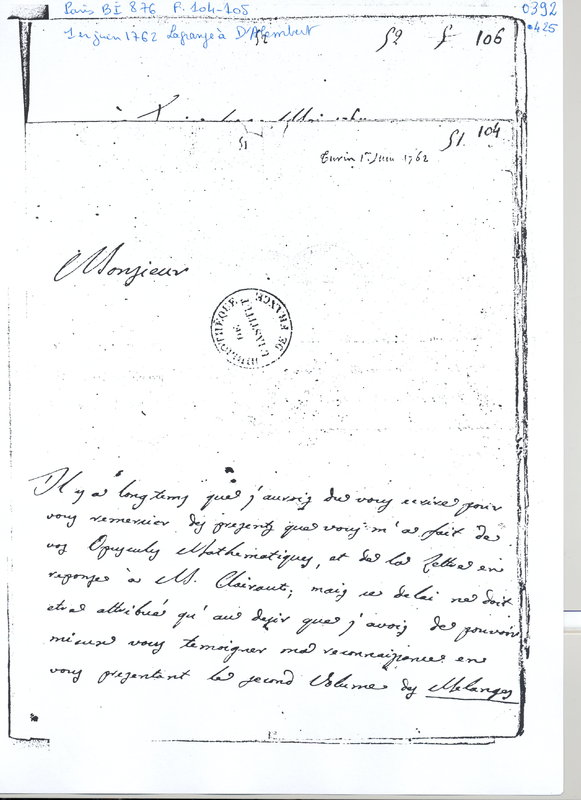 Paris BI 876 F. 104-105
0392
0425
1er juin 1762 Lagrange à D'Alembert
52 f 106
51 104
51
Turin 1r. Juin 1762
Monsieur
BIBLIOTHÈQUE DE L'INSTITUT DE FRANCE
Il y a longtems que j'aurois du vous ecrire pour
vous remercier des presents que vous m'a fait de
vos Opuscules Mathematiques, et de la lettre en
reponse à M. Clairaut; mais ce delai ne doit
etre attribué qu'au desir que j'avois de pouvoir
mieux vous temoigner ma reconnaissance en
vous presentant le second Volume des Melanges